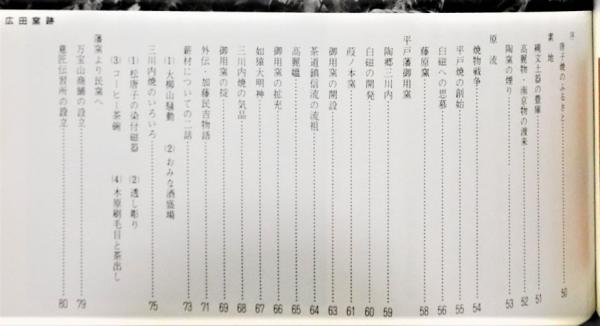 広田窯跡
序 唐子焼のふるさと 50
素地
縄文土器の豊庫 51
高麗物・南京物の渡来 52
陶窯の煙り 53
原流
焼物戦争 54
平戸焼の創始 55
白磁への思慕 56
藤原窯 58
平戸藩御用窯
陶郷三川内 59
白磁の開発 60
葭ノ本窯 61
御用窯の開設 63
茶道鎮信流の流祖 64
高麗媼 65
御用窯の拡充 66
如猿大明神 67
三川内焼の気品 68
御用窯の掟 69
外伝・加藤民吉物語 71
薪材についての二話 73
(1) 大柳山騒動 (2) おみな酒盛場
三川内焼のいろいろ 75
(1) 松唐子の染付磁器 (2) 透し彫り
(3) コーヒー茶碗 (4) 木原刷毛目と茶出し
藩窯より民窯へ
万宝山商舗の設立 79
意匠伝習所の設立 80